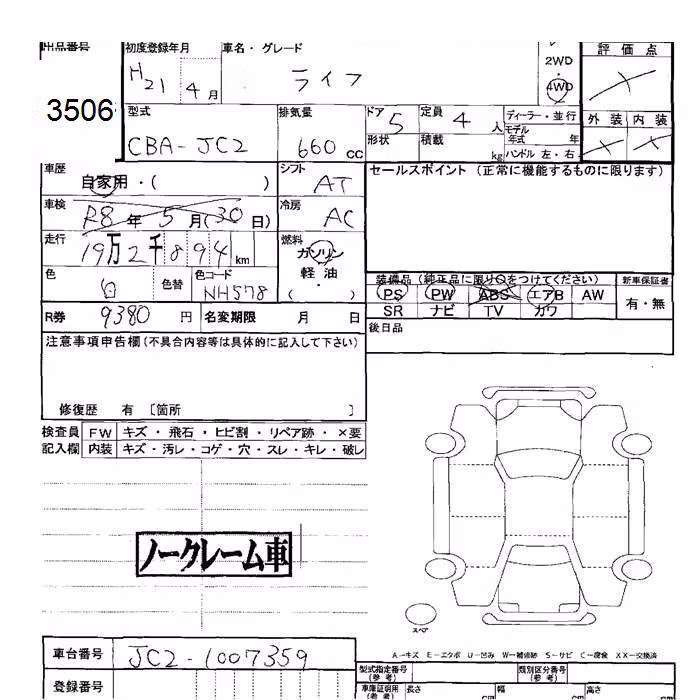 出品番号 初度登録年月 車名・グレード 評価点
2WD
H21 4月 ライフ 4WD
3506 型式 排気量 ドア 定員 ディーラー・並行 外装 内装
CBA-JC2 660cc 5 4人 モデル年式 年
形状 積載 kg ハンドル 左・右
車歴 シフト セールスポイント (正常に機能するものに限ります)
自家用・( ) AT
車検 R8年5月(30日) 冷房 AC
走行 19万2千894km 燃料 ガソリン
軽油
( )
色 白 色替 色コード NH578 装備品 (純正品に限り○をつけてください) 新車保証書
PS PW ABS エアB AW 有・無
R券 9380円 名変期限 月 日 SR ナビ TV カワ
後日品
注意事項申告欄(不具合内容等は具体的に記入して下さい)
修復歴 有 〔箇所 〕
検査員 FW キズ・飛石・ヒビ割・リペア跡・×要
記入欄 内装 キズ・汚レ・コゲ・穴・スレ・キレ・破レ
ノークレーム車
スペア
A-キズ E-エクボ U-凹み W-補修跡 S-サビ C-腐食 XX-交換済
車台番号 JC2-1007359 型式指定番号(参考) 類別区分番号(参考)
登録番号 車庫証明用(参考) 長さ cm 幅 cm 高さ cm